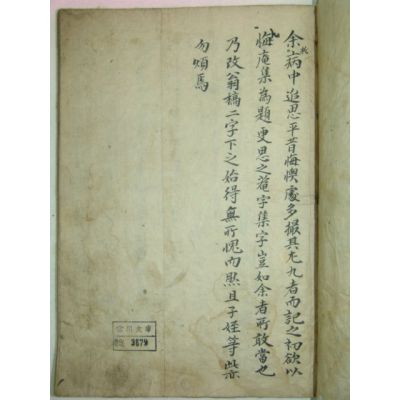 余病中追思平昔悔懊處多撮其尤者而記之初欲以
悔庵集爲題更思之菴字集字豈如余者所敢當也
乃改翁稿二字下之始得無所愧而然且子姪等
勿煩焉
3679